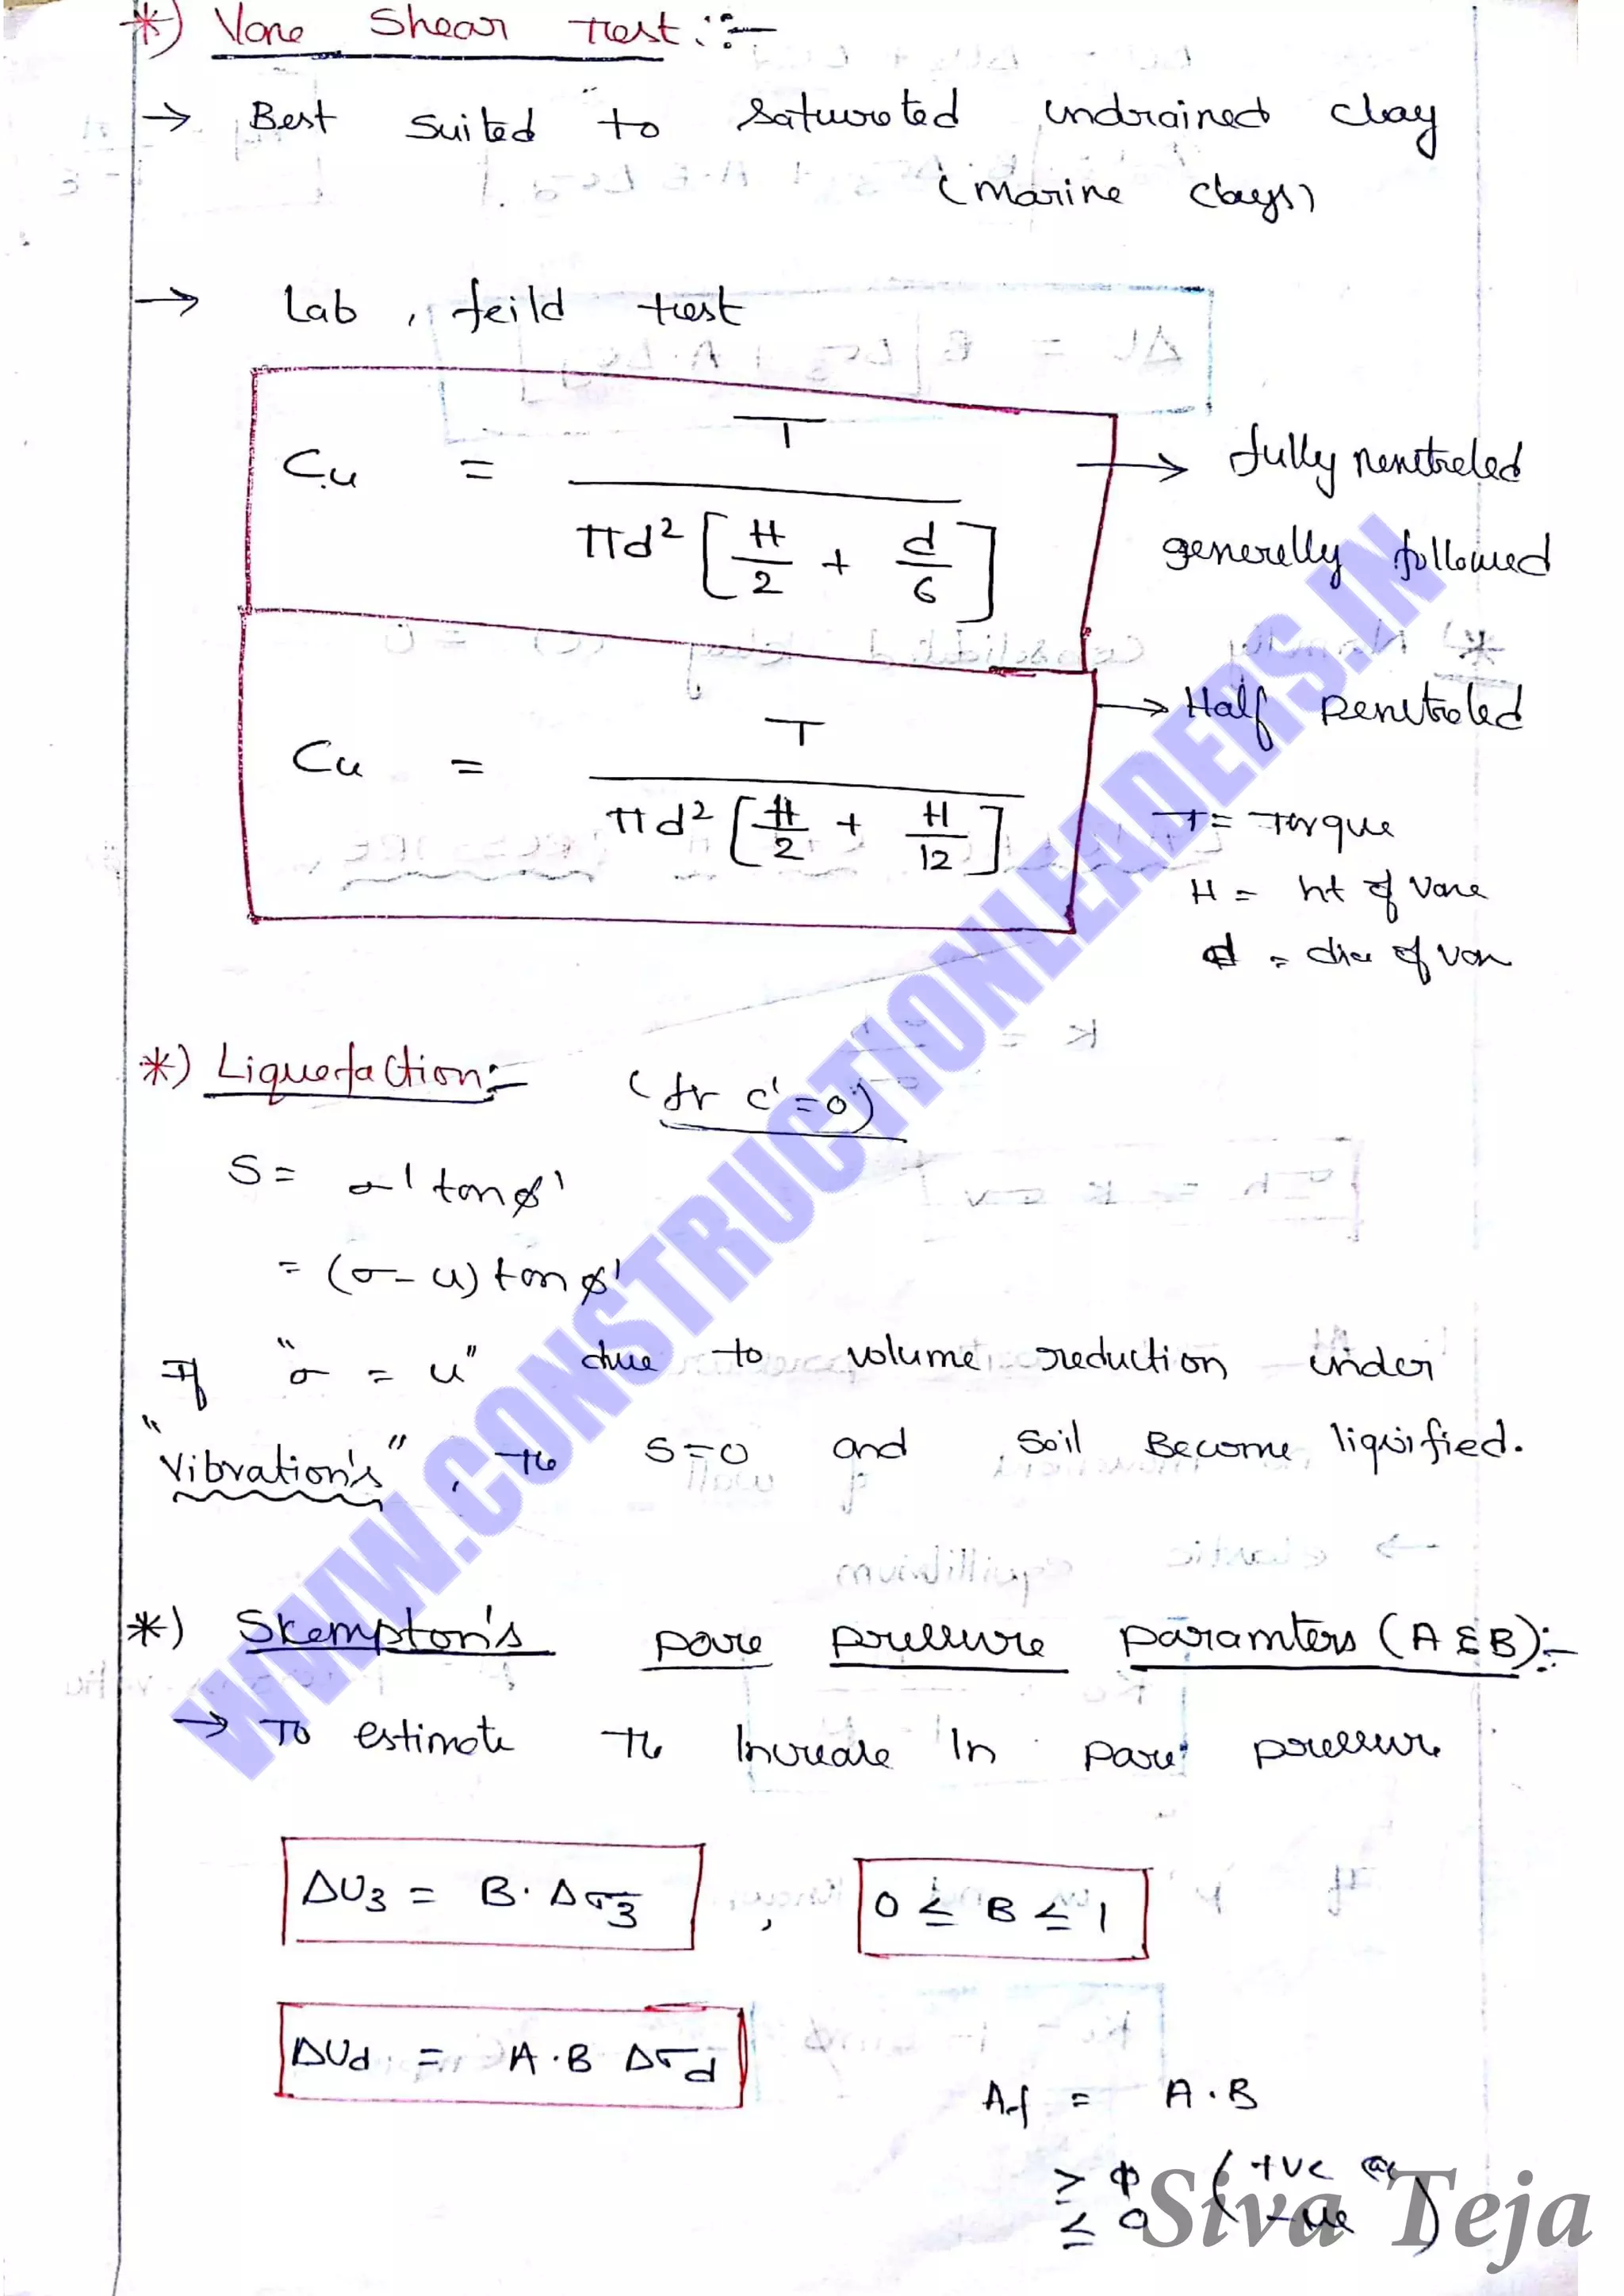 *) Vane Shear Test:-
→ Best suited to saturated undrained clay
(marine clays)
→ Lab, feild test
Cu = T / πd² [H/2 + d/6] → fully penitreted
generelly followed
Cu = T / πd² [H/2 + H/12] → Half penitroted
T = Torque
H = ht of vane
d = dia of van
*) Liquefaction:- (for c' = 0)
S = σ' tan ø'
= (σ - u) tan ø'
If "σ = u" due to volume reduction under
"Vibration's", the S=0 and soil Become liquified.
*) Skempton's pore pressure paramters (A & B):-
→ To estimate the Increase In pore pressure
ΔU3 = B. Δσ3 , 0 ≤ B ≤ 1
ΔUd = A.B Δσd
Af = A.B
≤ 0
WWW.CONSTRUCTIONLEADERS.IN
Siva Teja